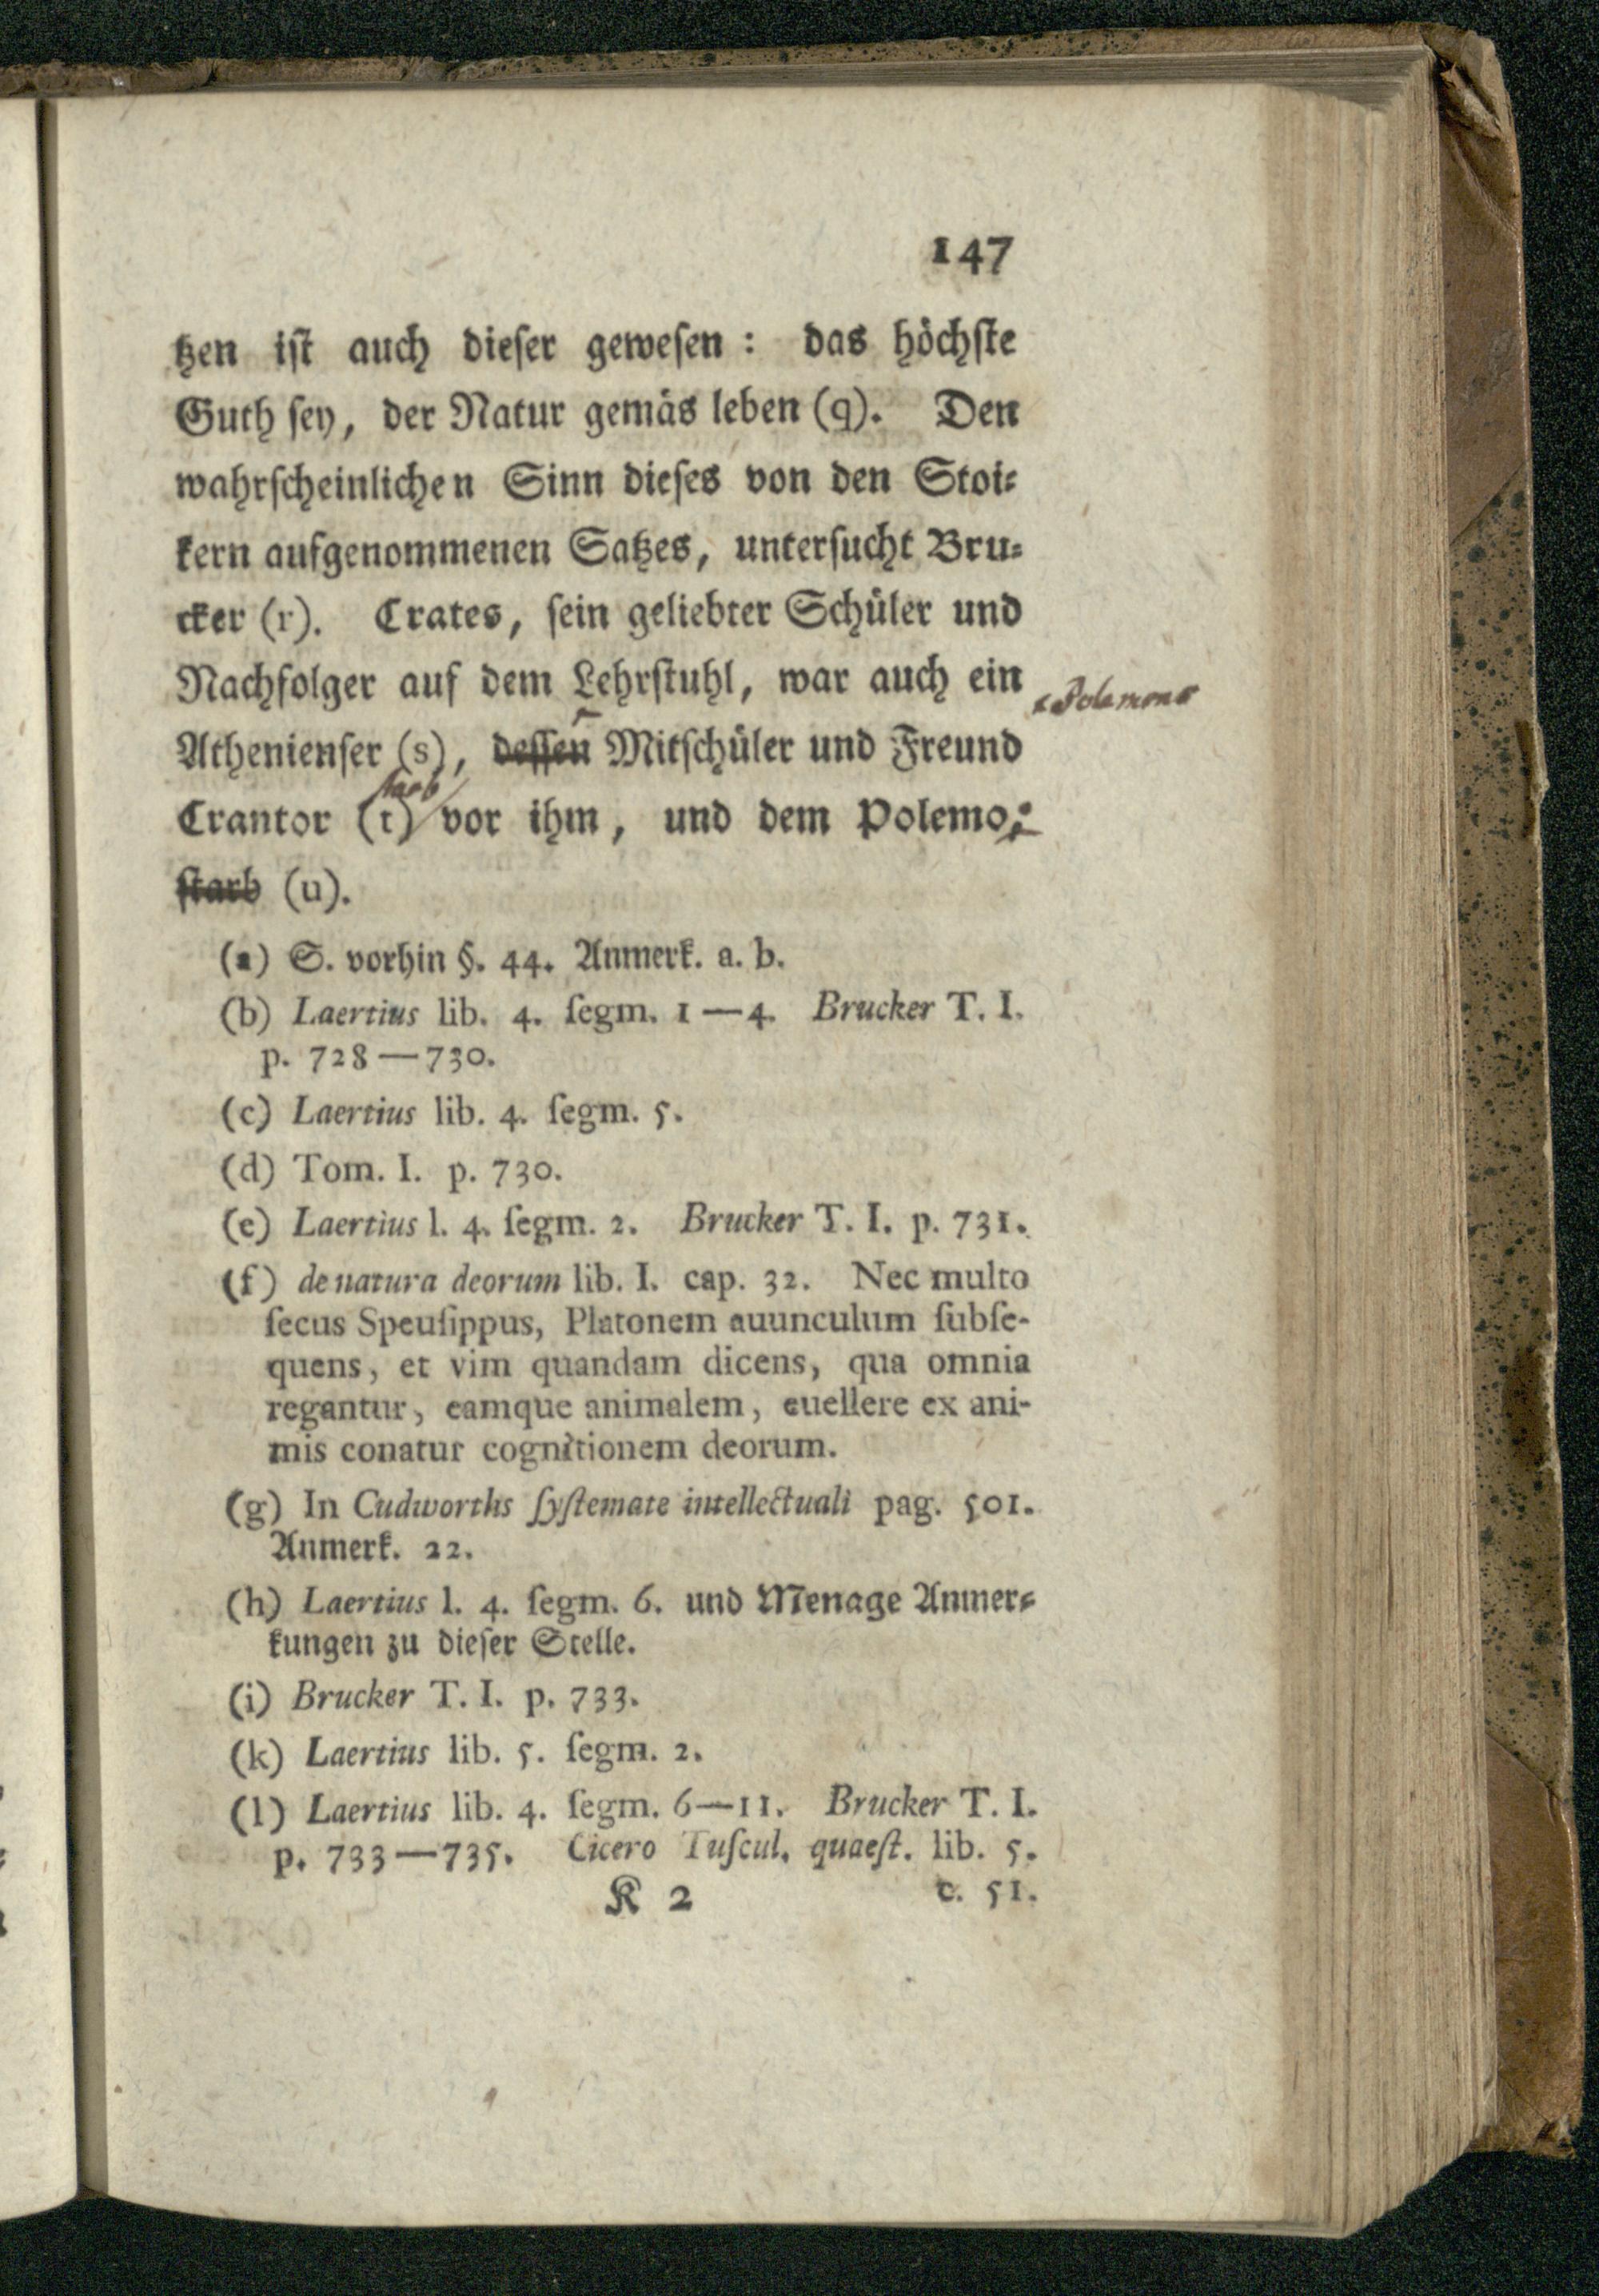 147
tzen ist auch dieser gewesen: das höchste
Guth sey, der Natur gemäs leben (q). Den
wahrscheinlichen Sinn dieses von den Stoi-
kern aufgenommenen Satzes, untersucht Bru-
cker (r). Crates, sein geliebter Schüler und
Nachfolger auf dem Lehrstuhl, war auch ein
Polemons
Athenienser (s), dessen Mitschüler und Freund
starb
Crantor (t) vor ihm, und dem Polemo.
starb (u).
(a) S. vorhin §. 44. Anmerk. a. b.
(b) Laertius lib. 4. ſegm. 1—4. Brucker T. I.
p. 728—730.
(c) Laertius lib. 4. ſegm. 5.
(d) Tom. I. p. 730.
(e) Laertius l. 4. ſegm. 2. Brucker T. I. p. 731.
(f) de natura deorum lib. I. cap. 32. Nec multo
ſecus Speuſippus, Platonem auunculum ſubſe-
quens, et vim quandam dicens, qua omnia
regantur, eamque animalem, euellere ex ani-
mis conatur cognitionem deorum.
(g) In Cudworths ſyſtemate intellectuali pag. 501.
Anmerk. 22.
(h) Laertius l. 4. ſegm. 6. und Menage Anmer-
kungen zu dieser Stelle.
(i) Brucker T. I. p. 733.
(k) Laertius lib. 5. ſegm. 2.
(l) Laertius lib. 4. ſegm. 6—11. Brucker T. I.
p. 733—735. Cicero Tuſcul. quaeſt. lib. 5.
K 2 c. 51.